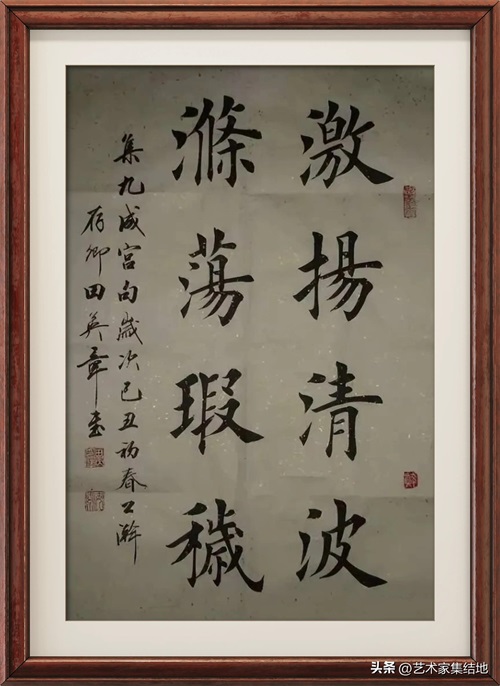 激揚清波
滌蕩瑕穢
集九成宮句歲次己丑初春上澣
存卿田英章書
头条 @艺术家集结地